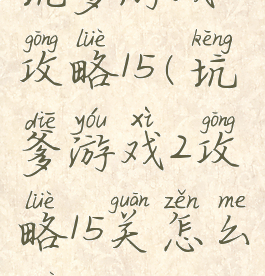 gōng lüè kēng
攻略15(坑
diē yóu xì gōng
爹游戏2攻
lüè guān zěn me
略15关怎么